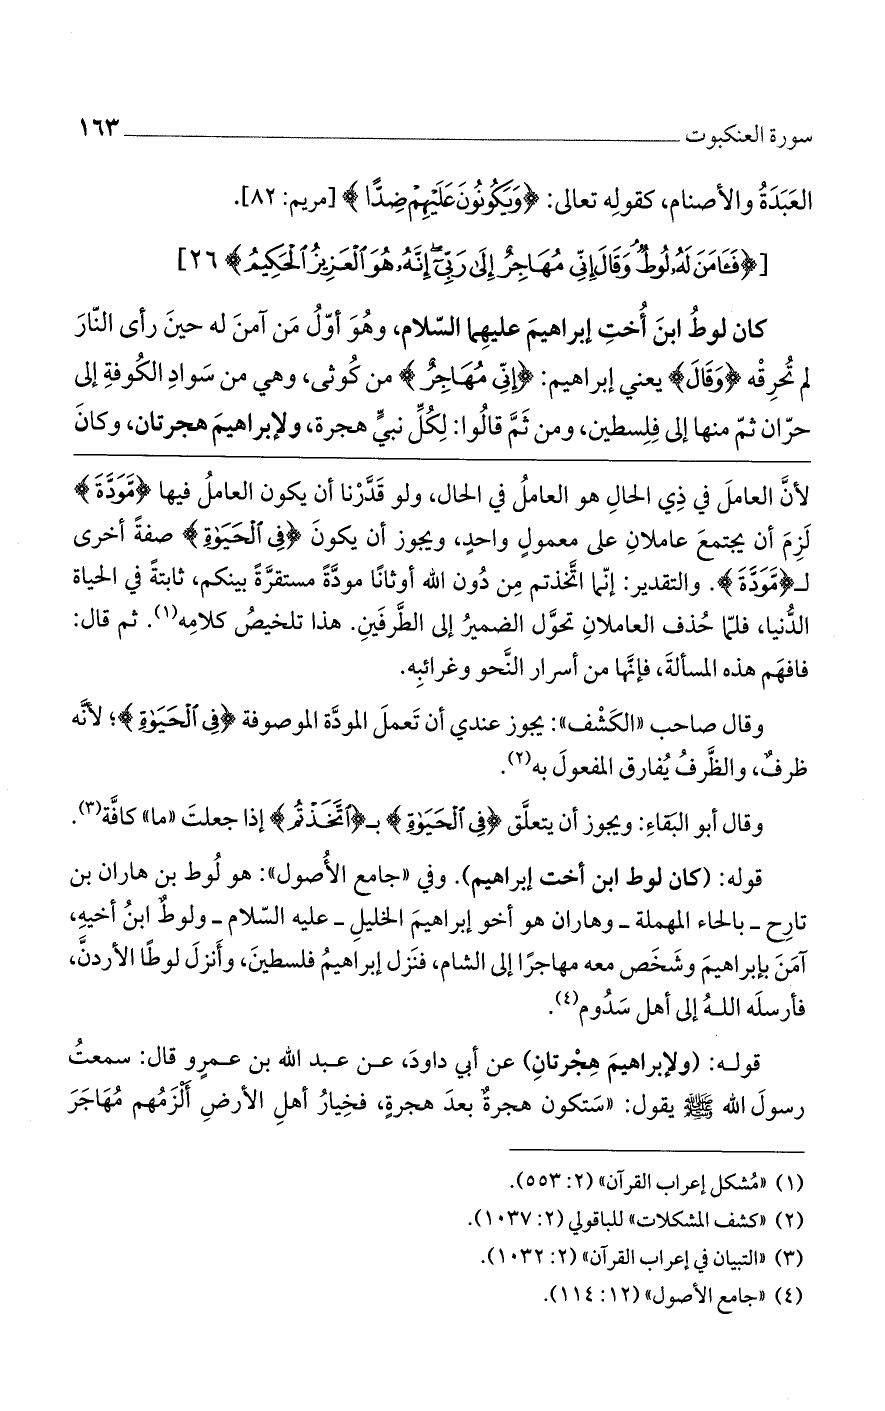 سورة العنكبوت ١٦٣
العَبَدَةُ والأصنام، كقولِه تعالى: ﴿وَيَكُونُونَ عَلَيْهِمْ ضِدًّا﴾ [مريم: ٨٢].
[﴿فَـَٔامَنَ لَهُۥ لُوطٌ ۘ وَقَالَ إِنِّى مُهَاجِرٌ إِلَىٰ رَبِّىٓ ۖ إِنَّهُۥ هُوَ ٱلْعَزِيزُ ٱلْحَكِيمُ﴾ ٢٦]
كان لوطُ ابنَ أُختِ إبراهيمَ عليهما السّلام، وهُوَ أوّلُ مَن آمنَ له حينَ رأى النّارَ
لم تُحرِقْه ﴿وَقَالَ﴾ يعني إبراهيم: ﴿إِنِّى مُهَاجِرٌ﴾ من كُوثى، وهي من سَوادِ الكُوفةِ إلى
حرّان ثمّ منها إلى فِلِسطين، ومن ثَمَّ قالُوا: لِكُلِّ نبيٍّ هجرة، ولإبراهيمَ هجرتان، وكانَ
لأنَّ العاملَ في ذِي الحالِ هو العاملُ في الحال، ولو قدَّرْنا أن يكون العاملُ فيها ﴿مَّوَدَّةَ﴾
لَزِمَ أن يجتمعَ عاملانِ على معمولٍ واحدٍ، ويجوز أن يكونَ ﴿فِى ٱلْحَيَوٰةِ﴾ صفةً أخرى
لـ﴿مَّوَدَّةَ﴾. والتقدير: إنّما اتَّخذتم مِن دُون الله أوثانًا مودَّةً مستقرَّةً بينكم، ثابتةً في الحياة
الدُّنيا، فلمّا حُذف العاملانِ تحوَّل الضميرُ إلى الظَّرفَينِ. هذا تلخيصُ كلامِه(١). ثم قال:
فافهَم هذه المسألةَ، فإنَّها من أسرار النَّحو وغرائبِه.
وقال صاحب «الكَشْف»: يجوز عندي أن تَعملَ المودَّة الموصوفة ﴿فِى ٱلْحَيَوٰةِ﴾؛ لأنَّه
ظرفٌ، والظَّرفُ يُفارق المفعولَ به(٢).
وقال أبو البَقاءِ: ويجوز أن يتعلَّق ﴿فِى ٱلْحَيَوٰةِ﴾ بـ﴿ٱتَّخَذْتُم﴾ إذا جعلتَ «ما» كافَّة(٣).
قوله: (كان لوط ابن أخت إبراهيم). وفي «جامع الأُصول»: هو لُوط بن هاران بن
تارِح ـ بالحاء المهملة ـ وهاران هو أخو إبراهيمَ الخليلِ ـ عليه السّلام ـ ولوطٌ ابنُ أخيهِ،
آمَنَ بإبراهيمَ وشَخَص معه مهاجرًا إلى الشام، فنَزل إبراهيمُ فلسطينَ، وأنزلَ لوطًا الأردنَّ،
فأرسلَه اللهُ إلى أهل سَدُوم(٤).
قولـه: (ولإبراهيمَ هِجْرتانِ) عن أبي داودَ، عـن عبـد الله بن عـمرٍو قال: سمعتُ
رسولَ الله ﷺ يقول: «سَتكون هجرةٌ بعدَ هجرةٍ، فخِيارُ أهلِ الأرضِ أَلْزَمُهم مُهَاجَرَ
(١) «مُشكل إعراب القرآن» (٢: ٥٥٣).
(٢) «كشف المشكلات» للباقولي (٢: ١٠٣٧).
(٣) «التبيان في إعراب القرآن» (٢: ١٠٣٢).
(٤) «جامع الأصول» (١٢: ١١٤).